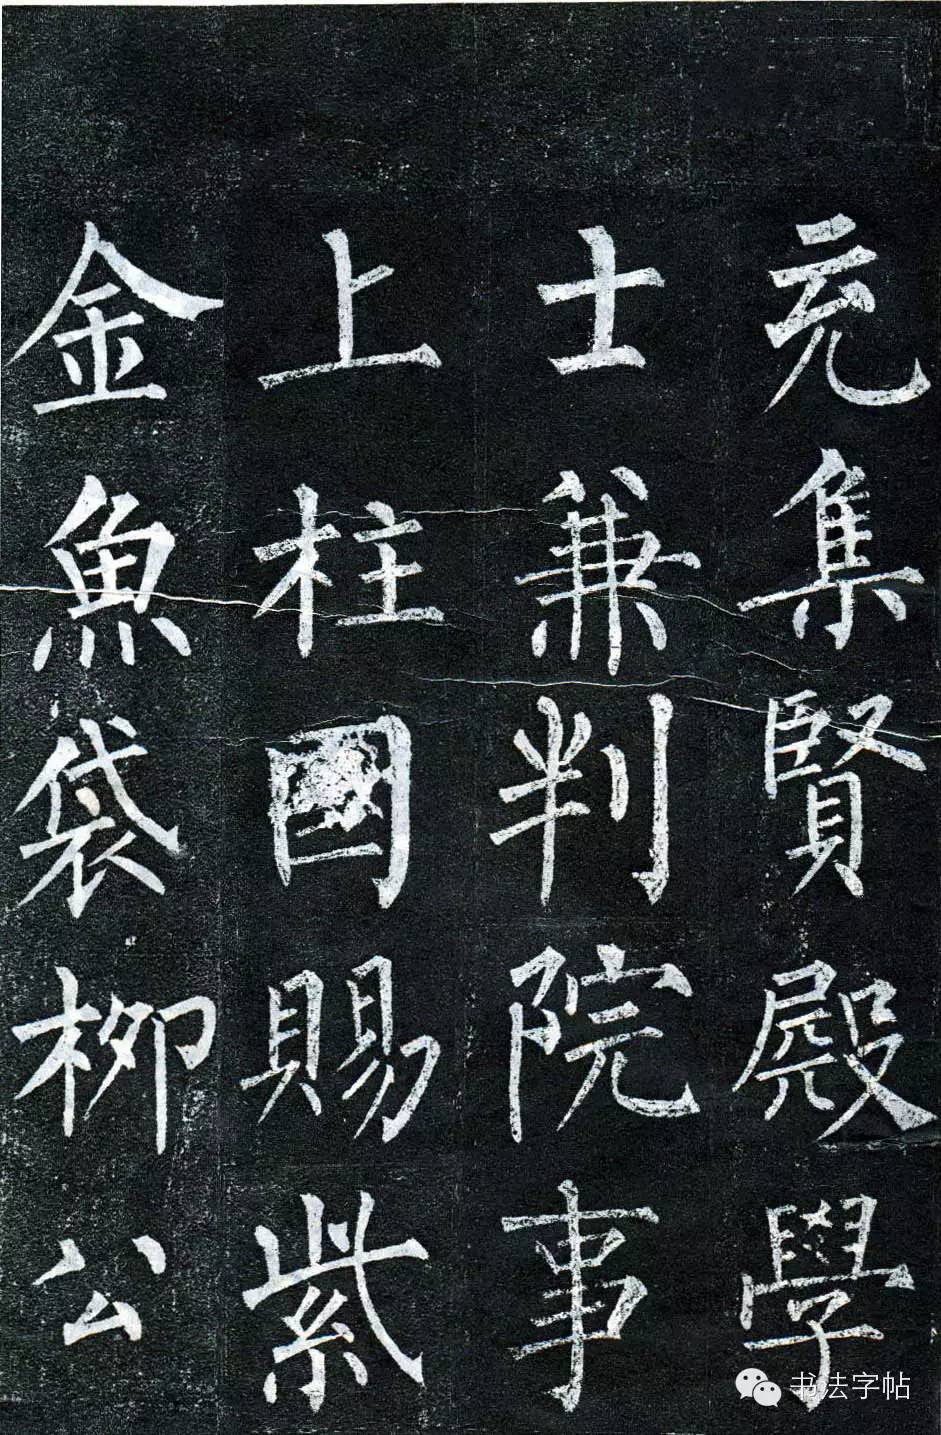 充集賢殿學
士兼判院事
上柱國賜紫
金魚袋柳公
书法字帖